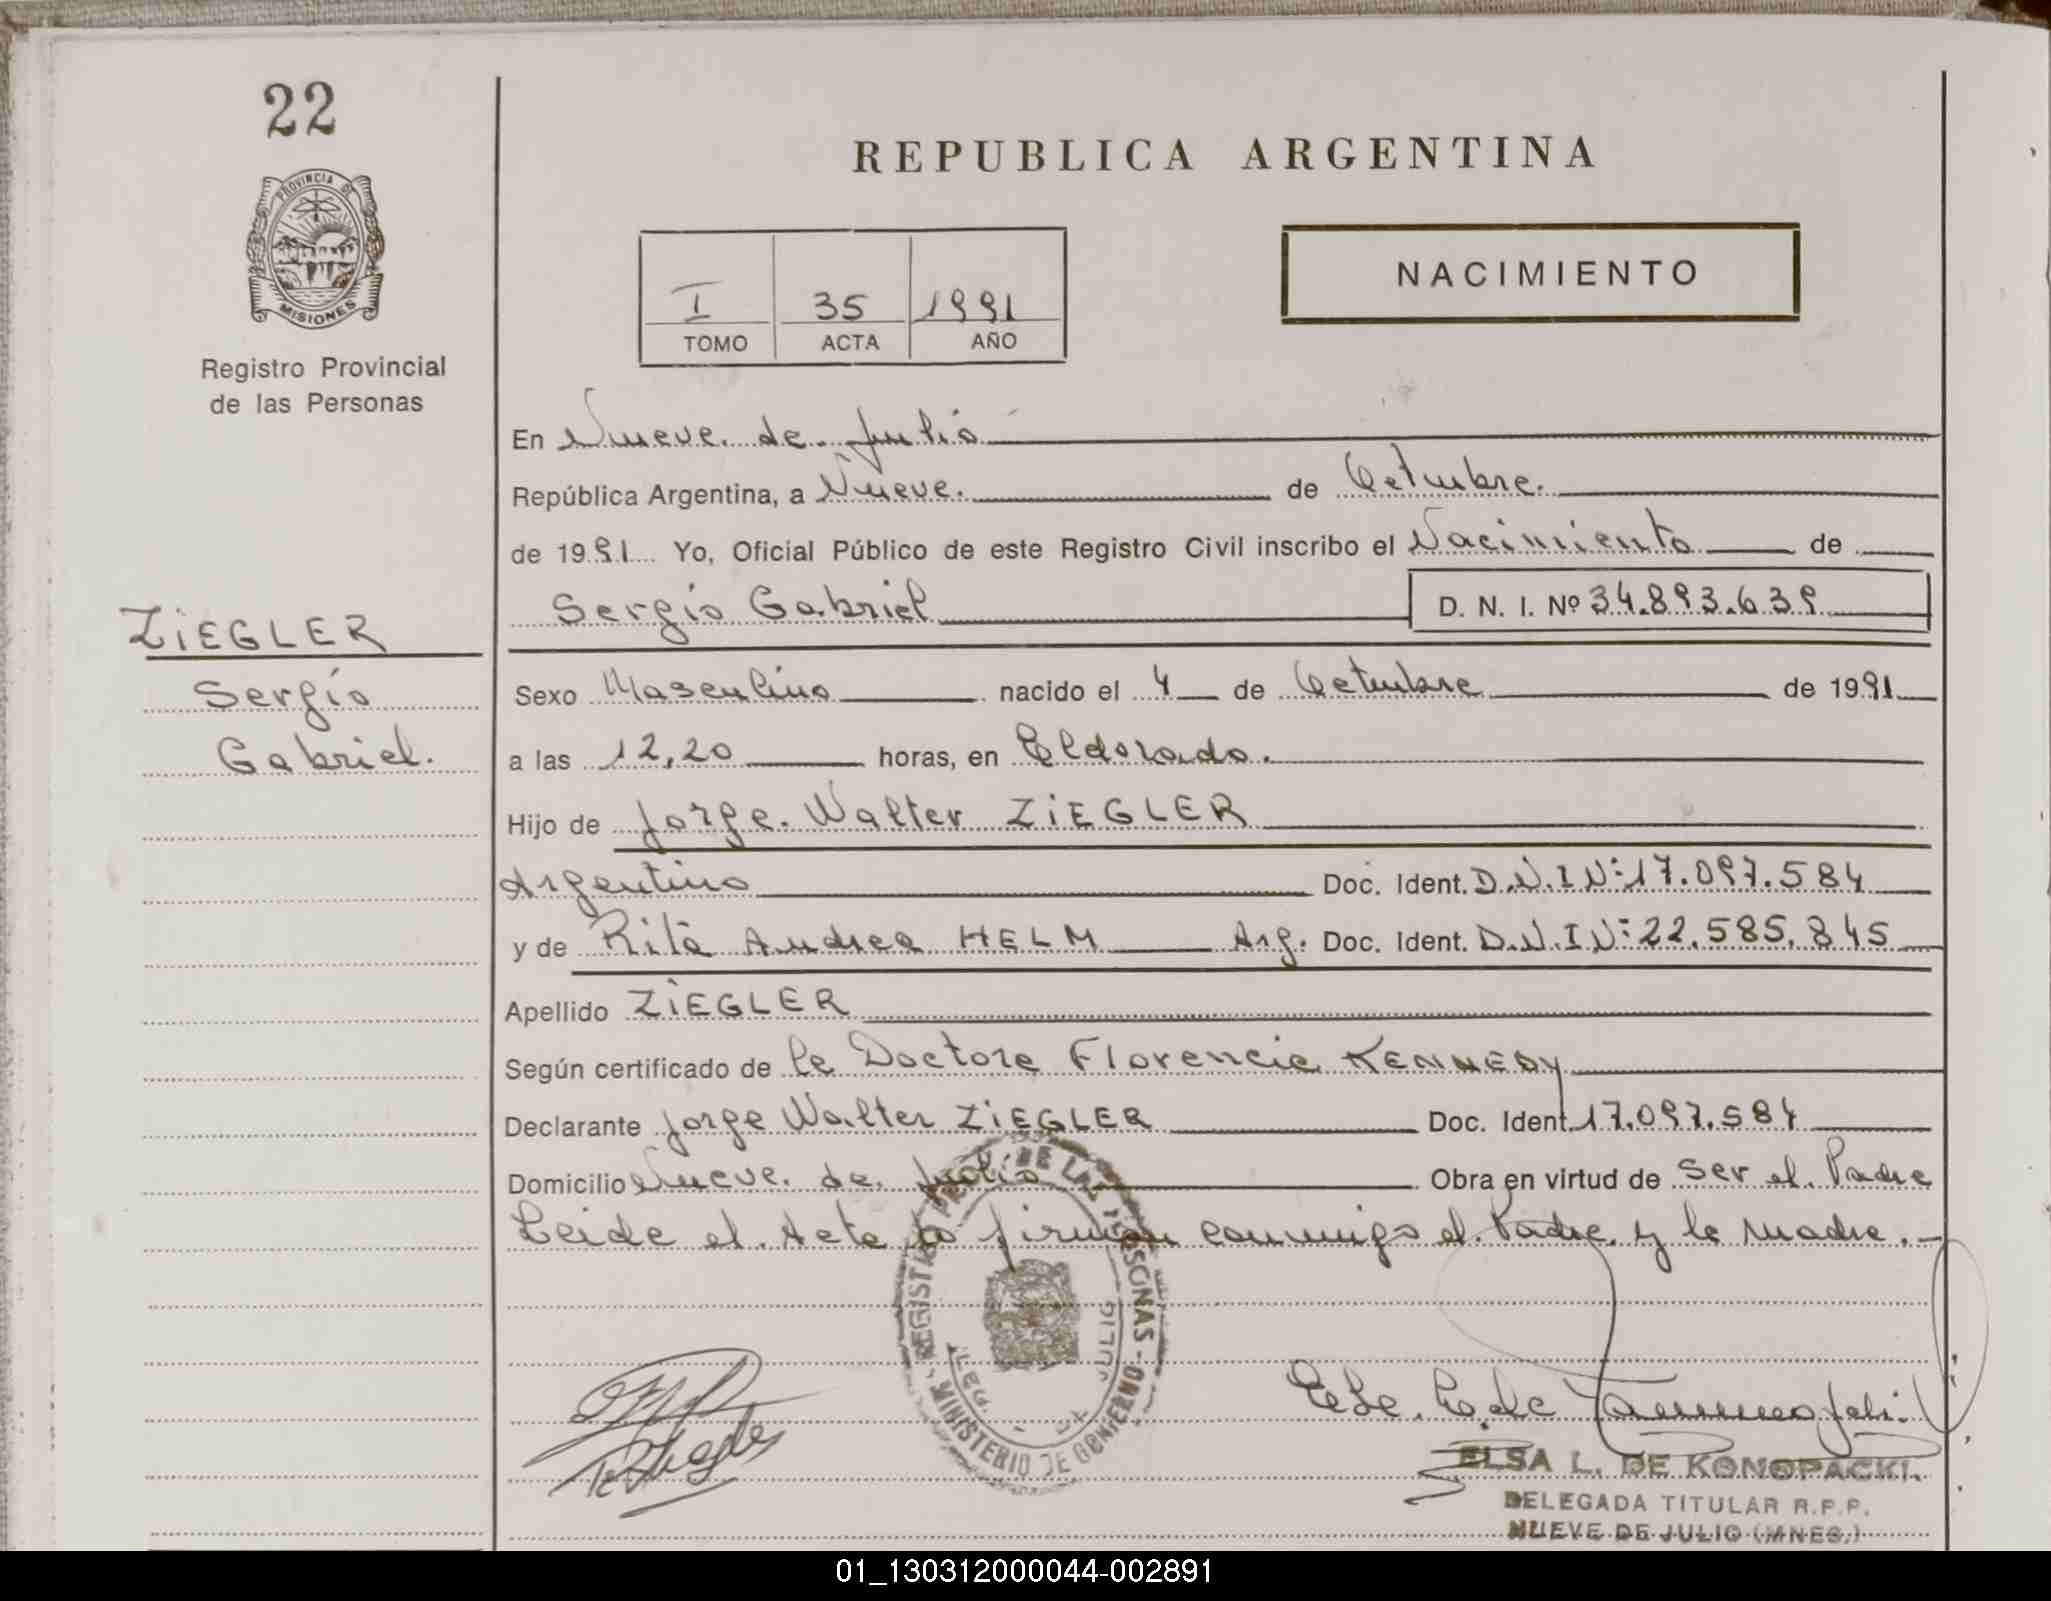 22
PROVINCIA DE
MISIONES
Registro Provincial
de las Personas
ZIEGLER
Sergio
Gabriel.
REPUBLICA ARGENTINA
I 35 1991
TOMO ACTA AÑO
NACIMIENTO
En Nueve de Julio
República Argentina, a Nueve. de Octubre.
de 1991 Yo, Oficial Público de este Registro Civil inscribo el Nacimiento de
Sergio Gabriel D. N. I. Nº 34.893.639
Sexo Masculino nacido el 4 de Octubre de 1991
a las 12,20 horas, en Eldorado.
Hijo de Jorge Walter ZIEGLER
Argentino Doc. Ident. D.N.I N: 17.097.584
y de Rita Andrea HELM Arg. Doc. Ident. D.N.I N: 22.585.845
Apellido ZIEGLER
Según certificado de la Doctora Florencia KENNEDY
Declarante Jorge Walter ZIEGLER Doc. Ident. 17.097.584
Domicilio Nueve de Julio Obra en virtud de Ser el Padre
Leida el Acta la firman conmigo el Padre y la madre.-
DE LAS PERSONAS - MINISTERIO DE GOBIERNO
ELSA L. DE KONOPACKI.
DELEGADA TITULAR R.P.P.
NUEVE DE JULIO (MNES.)
01_130312000044-002891